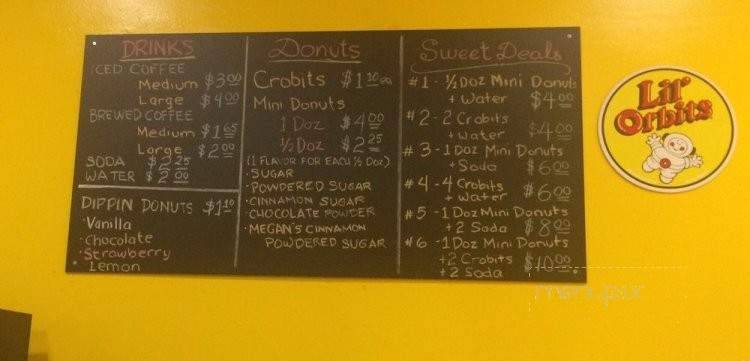 DRINKS
ICED COFFEE
Medium $3.00
Large $4.00
BREWED COFFEE
Medium $1.65
Large $2.00
SODA $2.25
WATER $2.00
DIPPIN DONUTS $1.10
• Vanilla
• Chocolate
• Strawberry
• Lemon
Donuts
Crobits $1.10
Mini Donuts
1 Doz $4.00
½ Doz $2.25
(1 FLAVOR FOR EACH ½ Doz)
- SUGAR
- POWDERED SUGAR
- CINNAMON SUGAR
- CHOCOLATE POWDER
- MEGAN'S CINNAMON
POWDERED SUGAR
Sweet Deals
#1 - ½ Doz Mini Donuts
+ Water $4.00
#2 - 2 Crobits
+ Water $4.00
#3 - 1 Doz Mini Donuts
+ Soda $6.00
#4 - 4 Crobits
+ Water $6.00
#5 - 1 Doz Mini Donuts
+ 2 Soda $8.00
#6 - 1 Doz Mini Donuts
+2 Crobits
+ 2 Soda $10.00
Lil' Orbits